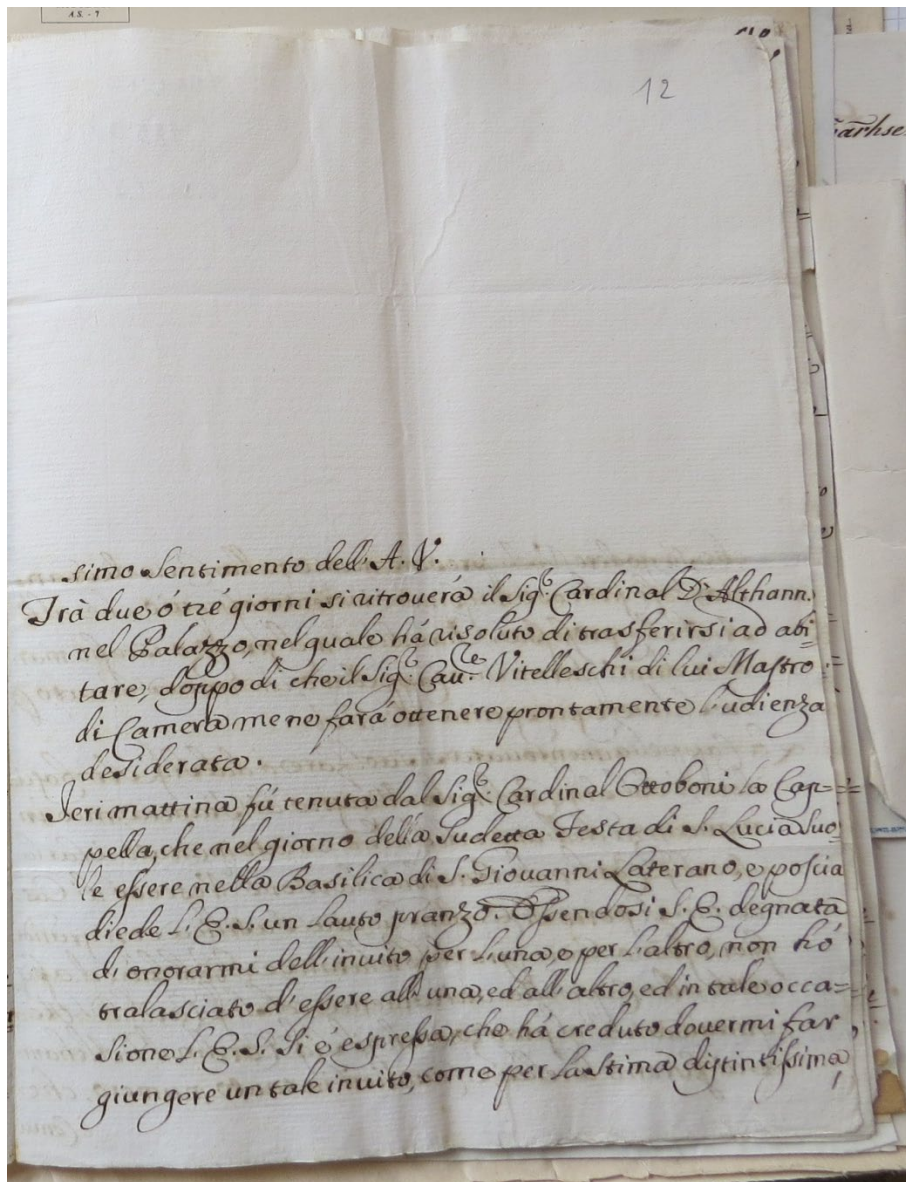 A.S. - 9
12
arhse
simo Sentimento dell'A. V.
Trà due ó tré giorni si ritroverá il Sig.r Cardinal D'Althann
nel Palazzo, nel quale há risoluto di trasferirsi ad abi-
tare, doppo di che il Sig.r Cau.re Vitelleschi di lui Mastro
di Camera me ne fará ottenere prontamente l'udienza
desiderata.
Jeri mattina fú tenuta dal Sig.r Cardinal Ottoboni la Cap=
pella, che nel giorno della Sudetta Festa di S. Lucia Suo
le essere nella Basilica di S. Giovanni Laterano, e poscia
diede L'E. S. un lauto pranzo. Essendosi S. E. degnata
di onorarmi dell'invito per l'una, e per l'altro, non hó
tralasciato d'essere all'una, ed all'altro, ed in tale occa=
sione L'E. S. Si é espressa, che há creduto dovermi far
giungere un tale invito, come per la Stima distintissima,